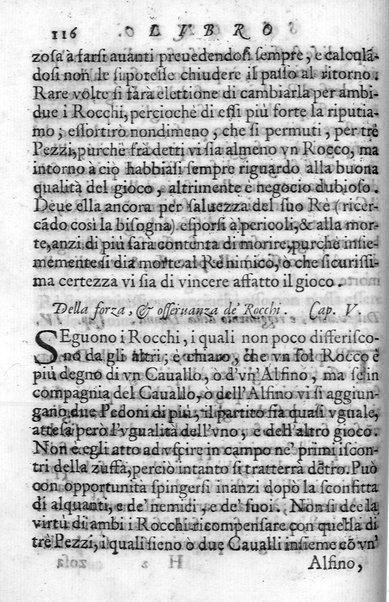 116 L V B R O
zosa à farsi auanti preuedendosi sempre, e calculã
dosi non le si potesse chiudere il passo al ritorno.
Rare volte si farà elettione di cambiarla per ambi
due i Rocchi, percioche di essi più forte la riputia-
mo; essortirò nondimeno, che si permuti, per trè
Pezzi, purche frà detti vi sia almeno vn Rocco, ma
intorno à ciò habbiasi sempre riguardo alla buona
qualità del gioco, altrimente è negocio dubioso.
Deue ella ancora per saluezza del suo Re (ricer-
cãdo così la bisogna) esporsi à pericoli, & alla mor-
te, anzi di più sarà contenta di morire, purche insie-
mementе si dia morte al Re nimico, ò che sicurissi-
ma certezza vi sia di vincere affatto il gioco.
Della forza, & osseruanza de' Rocchi. Cap. V.
SEguono i Rocchi, i quali non poco differisco-
no da gli altri; è chiaro, che vn sol Rocco è
più degno di vn Cauallo, ò d'vn'Alfino, ma se in
compagnia del Cauallo, ò dell'Alfino vi si aggiun-
gano due Pedoni di più, il partito sia quasi vguale,
attesa però l'vgualità dell'vno, e dell'altro gioco.
Non è egli atto ad vscire in campo ne' primi iscon
tri della zuffa, perciò intanto si tratterrà dẽtro. Può
con opportunità spingersi inanzi dopò la sconfitta
di alquanti, e de' nemici, e de' suoi. Non si dee la
virtù di ambi i Rocchi ricompensare con quella di
trè Pezzi, i quali sieno ò due Caualli insieme cõ vn'
Alfino,